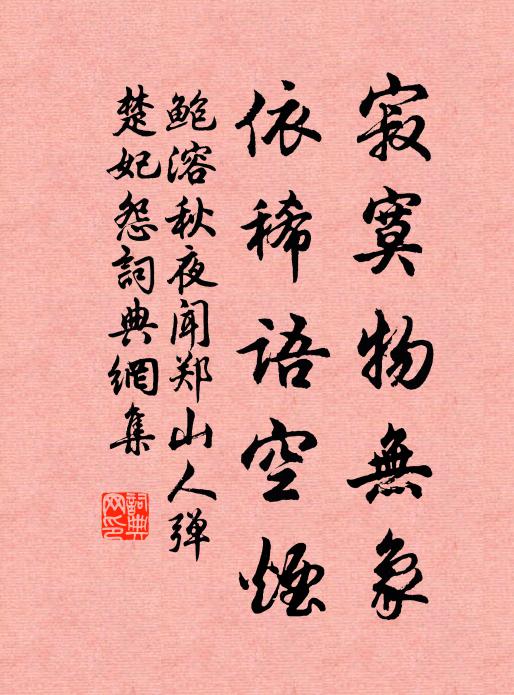 寂寞物無象
依稀語空煙
鲍溶秋夜闻郑山人弹
楚妃怨詞典網集
詞典
网印